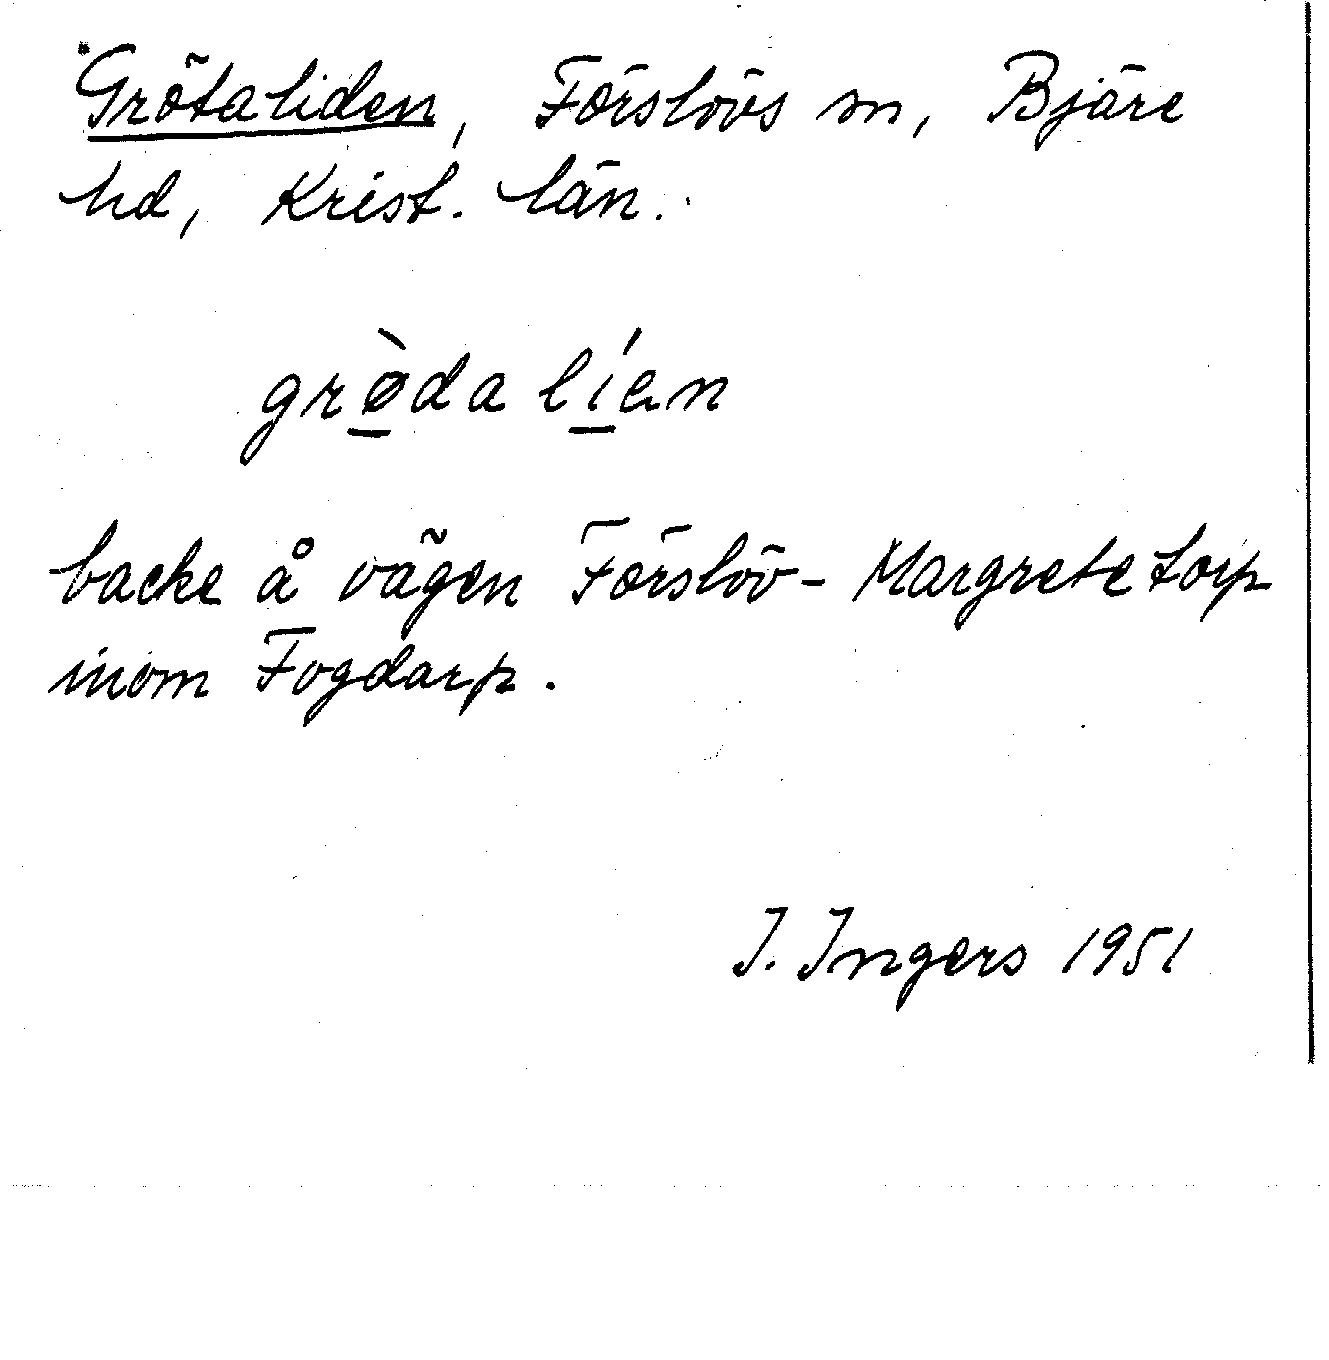 Grötaliden, Förslövs sn, Bjäre
hd, Krist. län.
grø̀da líen
backe å vägen Förslöv- Margretetorp
inom Fogdarp.
I. Ingers 1951